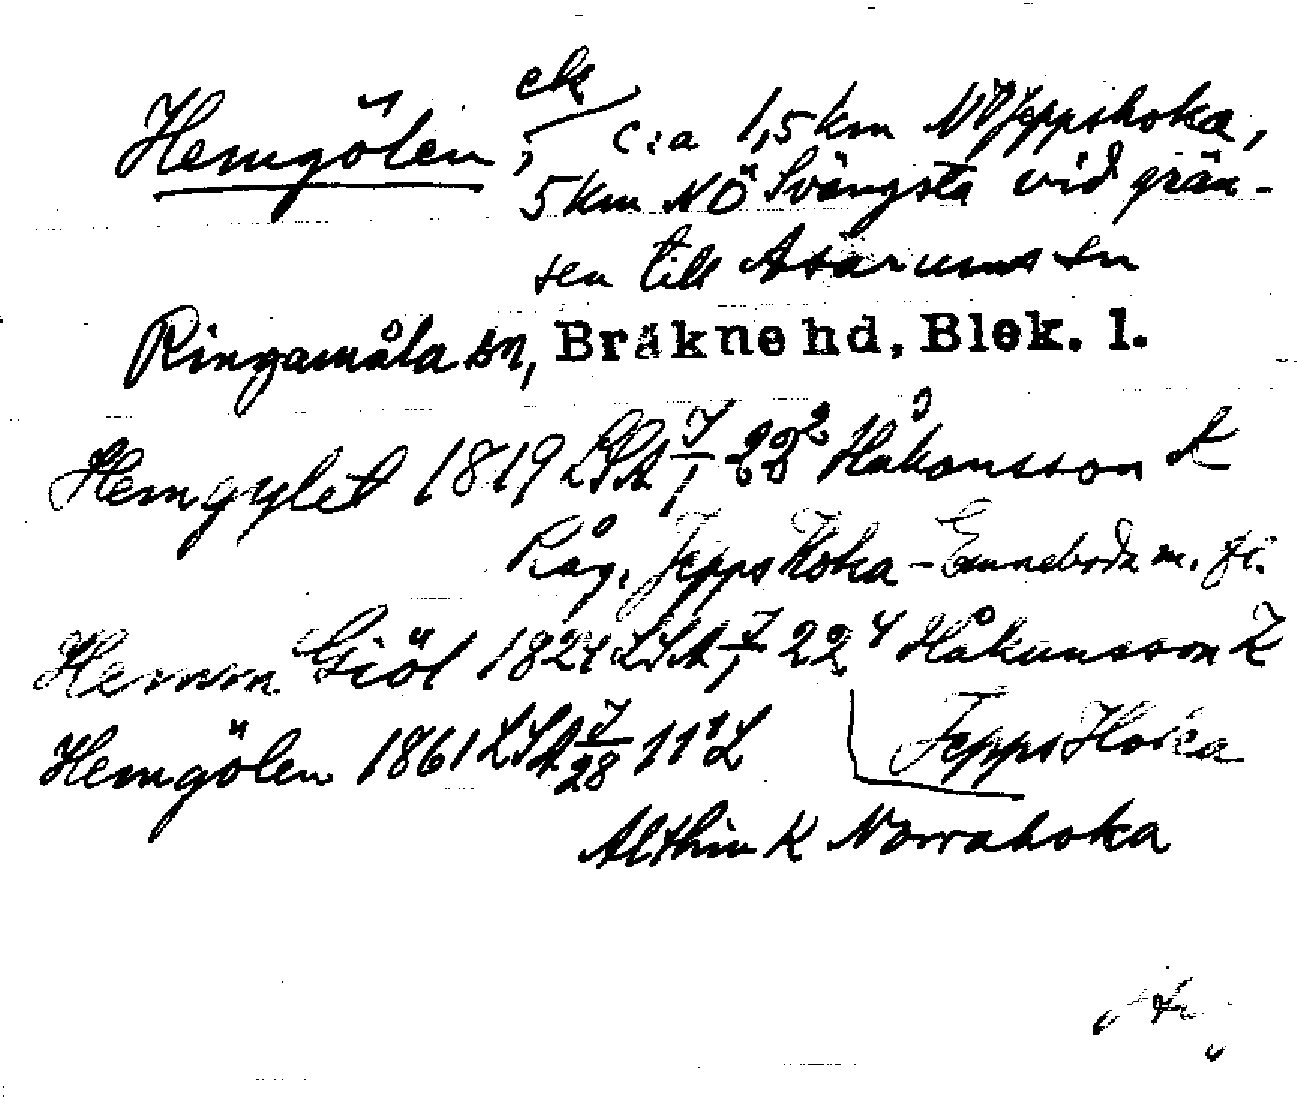 Hemgölen, ek c:a 1,5 km NO Jeppshoka,
5 km NÖ Svängsta vid grän-
sen till Asarums sn
Ringamåla sn, Bräkne hd, Blek. l.
Hemgylet 1819 LSA J/1 22² Håkansson K
Råg. Jepps Hoka - Enneboda m. fl.
Hemm Giöl 1824 LSA J/1 22⁴ Håkansson K
Jepps Hoka
Hemgölen 1861 LSA J/28 11¹ L
Althin K Norrahoka